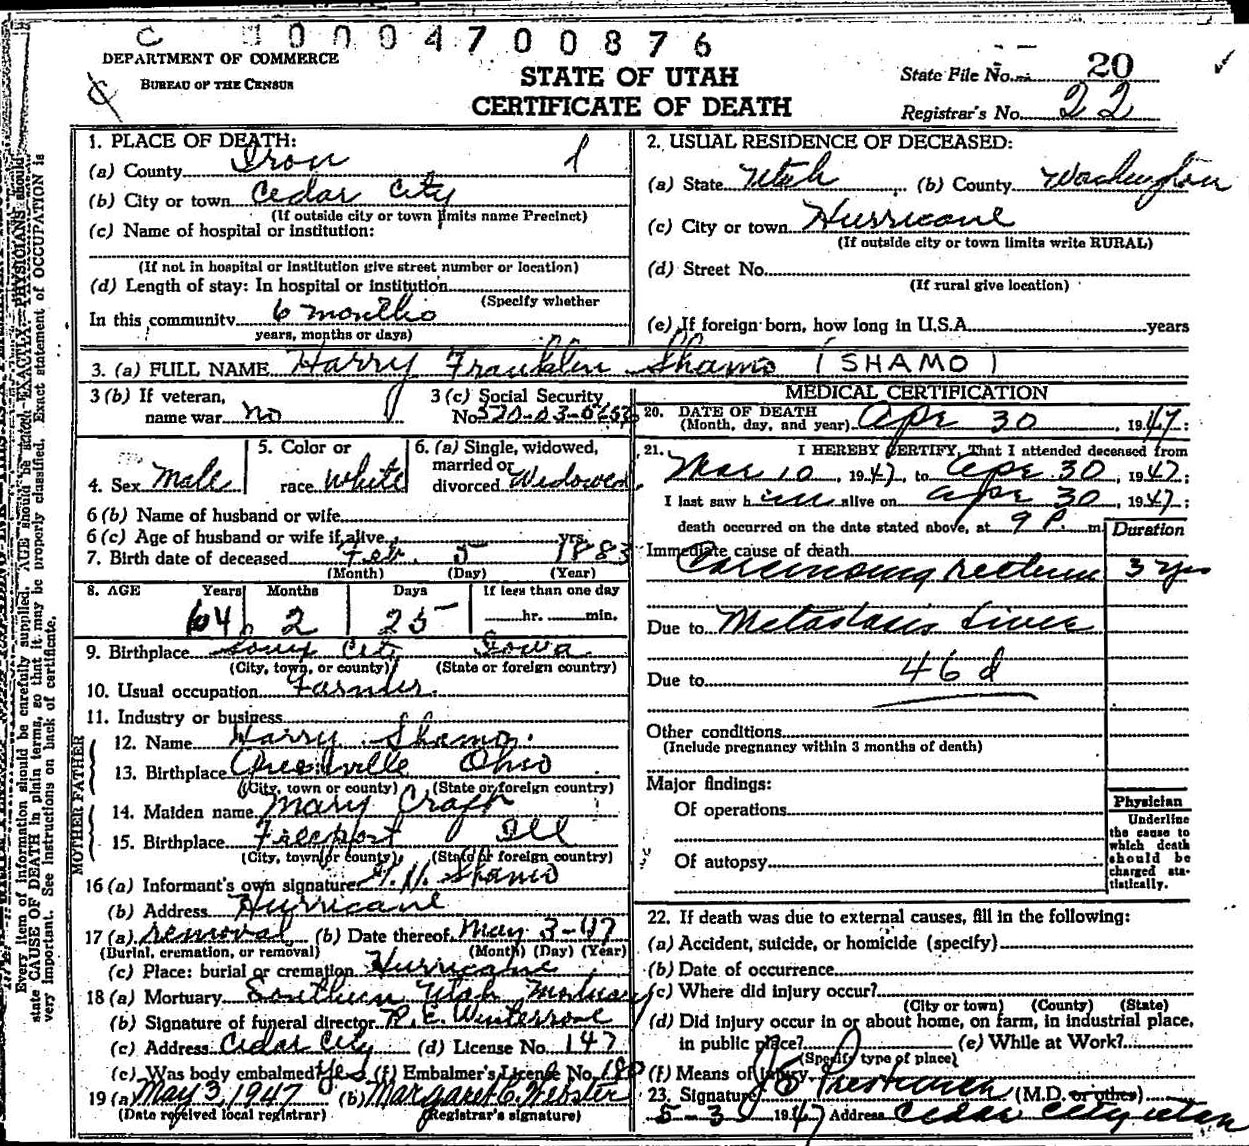 C 0004700876
DEPARTMENT OF COMMERCE
BUREAU OF THE CENSUS
STATE OF UTAH
CERTIFICATE OF DEATH
State File No. 20
Registrar's No. 22
Every item of information should be carefully supplied. AGE should be stated EXACTLY. PHYSICIANS should
state CAUSE OF DEATH in plain terms, so that it may be properly classified. Exact statement of OCCUPATION is
very important. See instructions on back of certificate.
1. PLACE OF DEATH: 1
(a) County Iron
(b) City or town Cedar City
(If outside city or town limits name Precinct)
(c) Name of hospital or institution:
(If not in hospital or institution give street number or location)
(d) Length of stay: In hospital or institution
(Specify whether
In this community 6 months
years, months or days)
2. USUAL RESIDENCE OF DECEASED:
(a) State Utah (b) County Washington
(c) City or town Hurricane
(If outside city or town limits write RURAL)
(d) Street No.
(If rural give location)
(e) If foreign born, how long in U.S.A. years
3. (a) FULL NAME Harry Franklin Shamo (SHAMO)
3 (b) If veteran,
name war no
3 (c) Social Security
No.
4. Sex Male
5. Color or
race White
6. (a) Single, widowed,
married or
divorced Widowed
6 (b) Name of husband or wife
6 (c) Age of husband or wife if alive yrs.
7. Birth date of deceased Feb. 5 1883
(Month) (Day) (Year)
8. AGE Years Months Days If less than one day
64 2 25 hr. min.
9. Birthplace City Iowa
(City, town, or county) (State or foreign country)
10. Usual occupation Farmer
11. Industry or business
FATHER
12. Name Harry Shamo
13. Birthplace Greenville Ohio
(City, town or county) (State or foreign country)
MOTHER
14. Maiden name Mary
15. Birthplace Freeport Ill
(City, town or county) (State or foreign country)
16 (a) Informant's own signature Shamo
(b) Address Hurricane
17 (a) removal (b) Date thereof May 3-47
(Burial, cremation, or removal) (Month) (Day) (Year)
(c) Place: burial or cremation Hurricane
18 (a) Mortuary Southern Utah Mortuary
(b) Signature of funeral director R. E. Winterrose
(c) Address Cedar City (d) License No. 147
(e) Was body embalmed? Yes (f) Embalmer's License No.
19 (a) May 3, 1947 (b) Margaret C. Webster
(Date received local registrar) (Registrar's signature)
MEDICAL CERTIFICATION
20. DATE OF DEATH
(Month, day, and year) Apr 30, 1947;
21. I HEREBY CERTIFY, That I attended deceased from
Mar 10, 1947, to Apr 30, 1947;
I last saw him alive on Apr 30, 1947;
death occurred on the date stated above, at 9 P. m
Duration
Immediate cause of death
Carcinoma rectum 3 yrs
Due to Metastasis Liver
Due to 46d
Other conditions
(Include pregnancy within 3 months of death)
Major findings:
Of operations
Of autopsy
Physician
Underline
the cause to
which death
should be
charged sta-
tistically.
22. If death was due to external causes, fill in the following:
(a) Accident, suicide, or homicide (specify)
(b) Date of occurrence
(c) Where did injury occur?
(City or town) (County) (State)
(d) Did injury occur in or about home, on farm, in industrial place,
in public place? (e) While at Work?
(Specify type of place)
(f) Means of injury
23. Signature (M.D. or other)
5-3 1947 Address Cedar City Utah